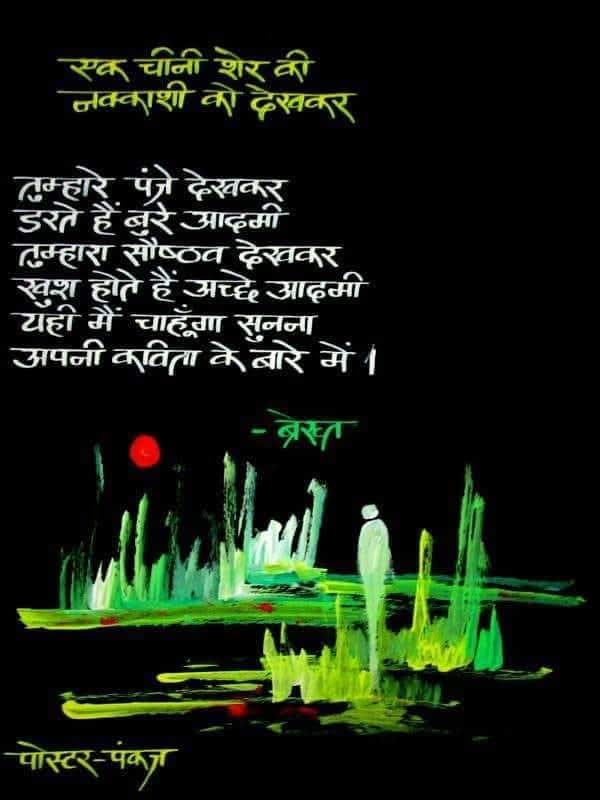 एक चीनी शेर की
नक्काशी को देखकर
तुम्हारे पंजे देखकर
डरते हैं बुरे आदमी
तुम्हारा सौष्ठव देखकर
खुश होते हैं अच्छे आदमी
यही मैं चाहूँगा सुनना
अपनी कविता के बारे में ।
- ब्रेख्त
पोस्टर-पंकज